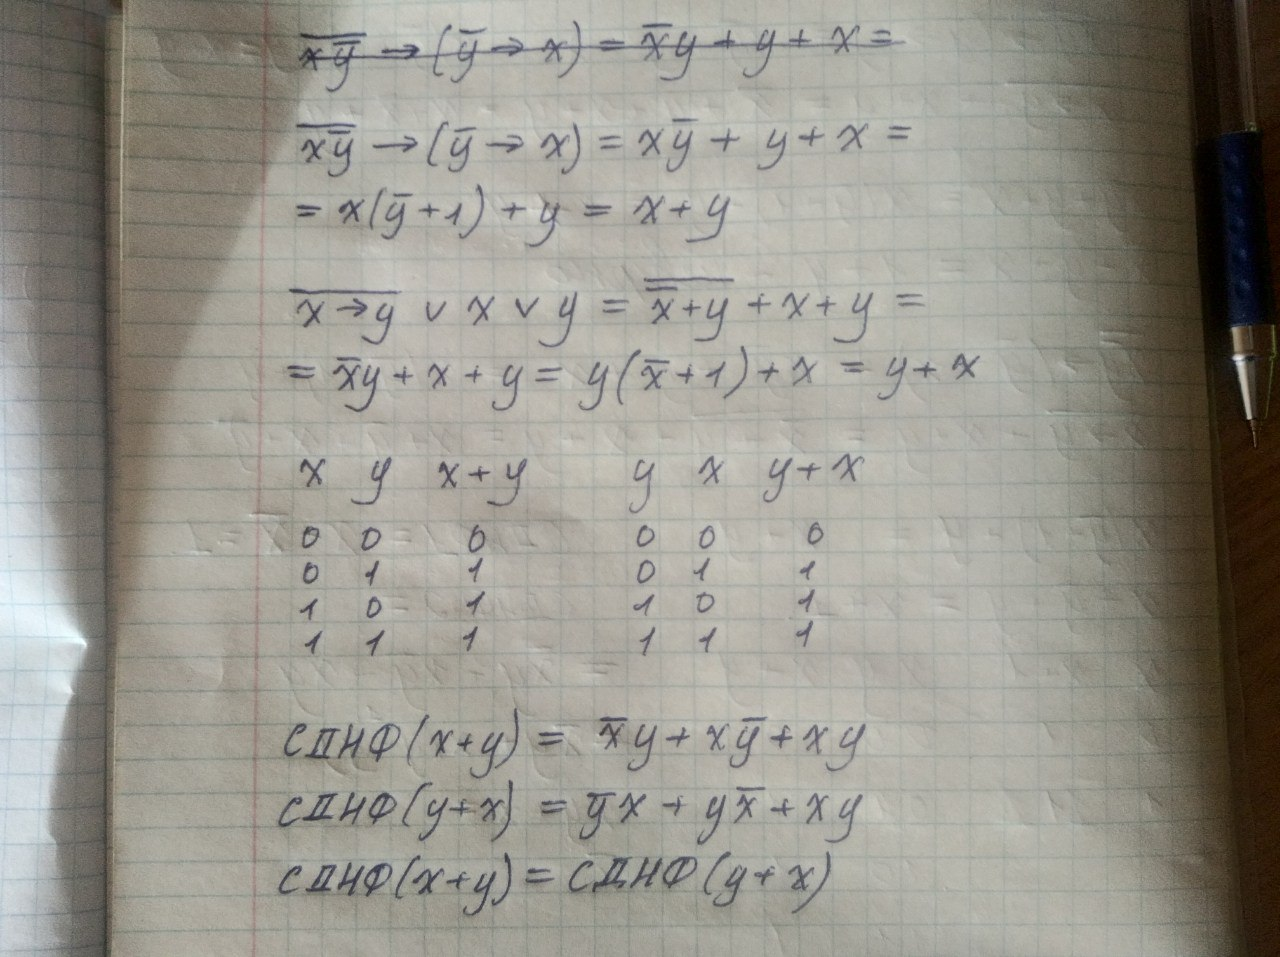 x̅y̅̅ → (y̅ → x) = x̅y + y + x =
x̅y̅̅ → (y̅ → x) = xy̅ + y + x =
= x(y̅ + 1) + y = x + y
x̅ ̅→̅ ̅y̅ ∨ x ∨ y = x̅̅ ̅+̅ ̅y̅ + x + y =
= x̅y + x + y = y(x̅ + 1) + x = y + x
x y x + y y x y + x
0 0 0 0 0 0
0 1 1 0 1 1
1 0 1 1 0 1
1 1 1 1 1 1
СДНФ(x+y) = x̅y + xy̅ + xy
СДНФ(y+x) = y̅x + yx̅ + xy
СДНФ(x+y) = СДНФ(y+x)